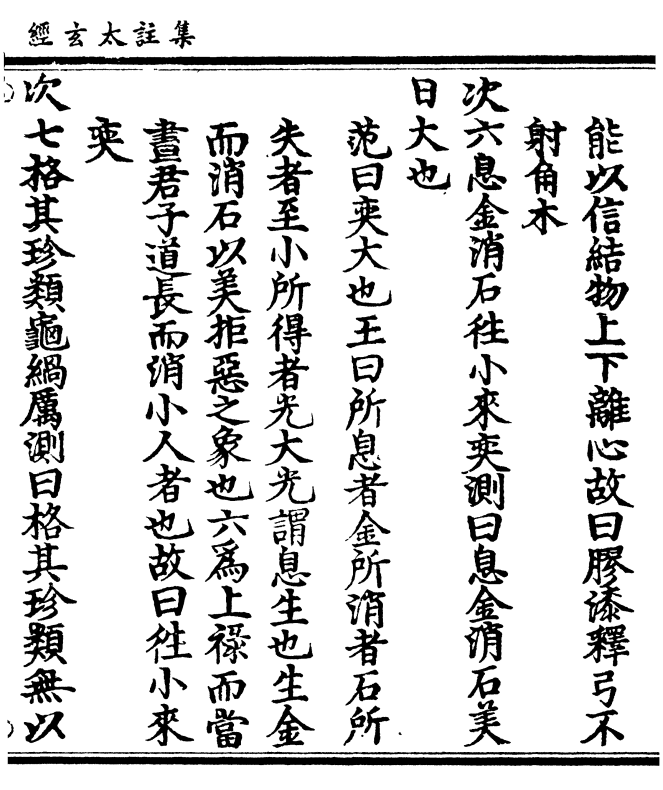 集註太玄經
能以信結物上下離心故曰膠漆釋弓不
射角木
次六息金消石徃小來奕測曰息金消石美
日大也
范曰奕大也王曰所息者金所消者石所
失者至小所得者光大光謂息生也生金
而消石以美拒惡之象也六爲上祿而當
晝君子道長而消小人者也故曰徃小來
奕
次七格其珍類龜緺厲測曰格其珍類無以